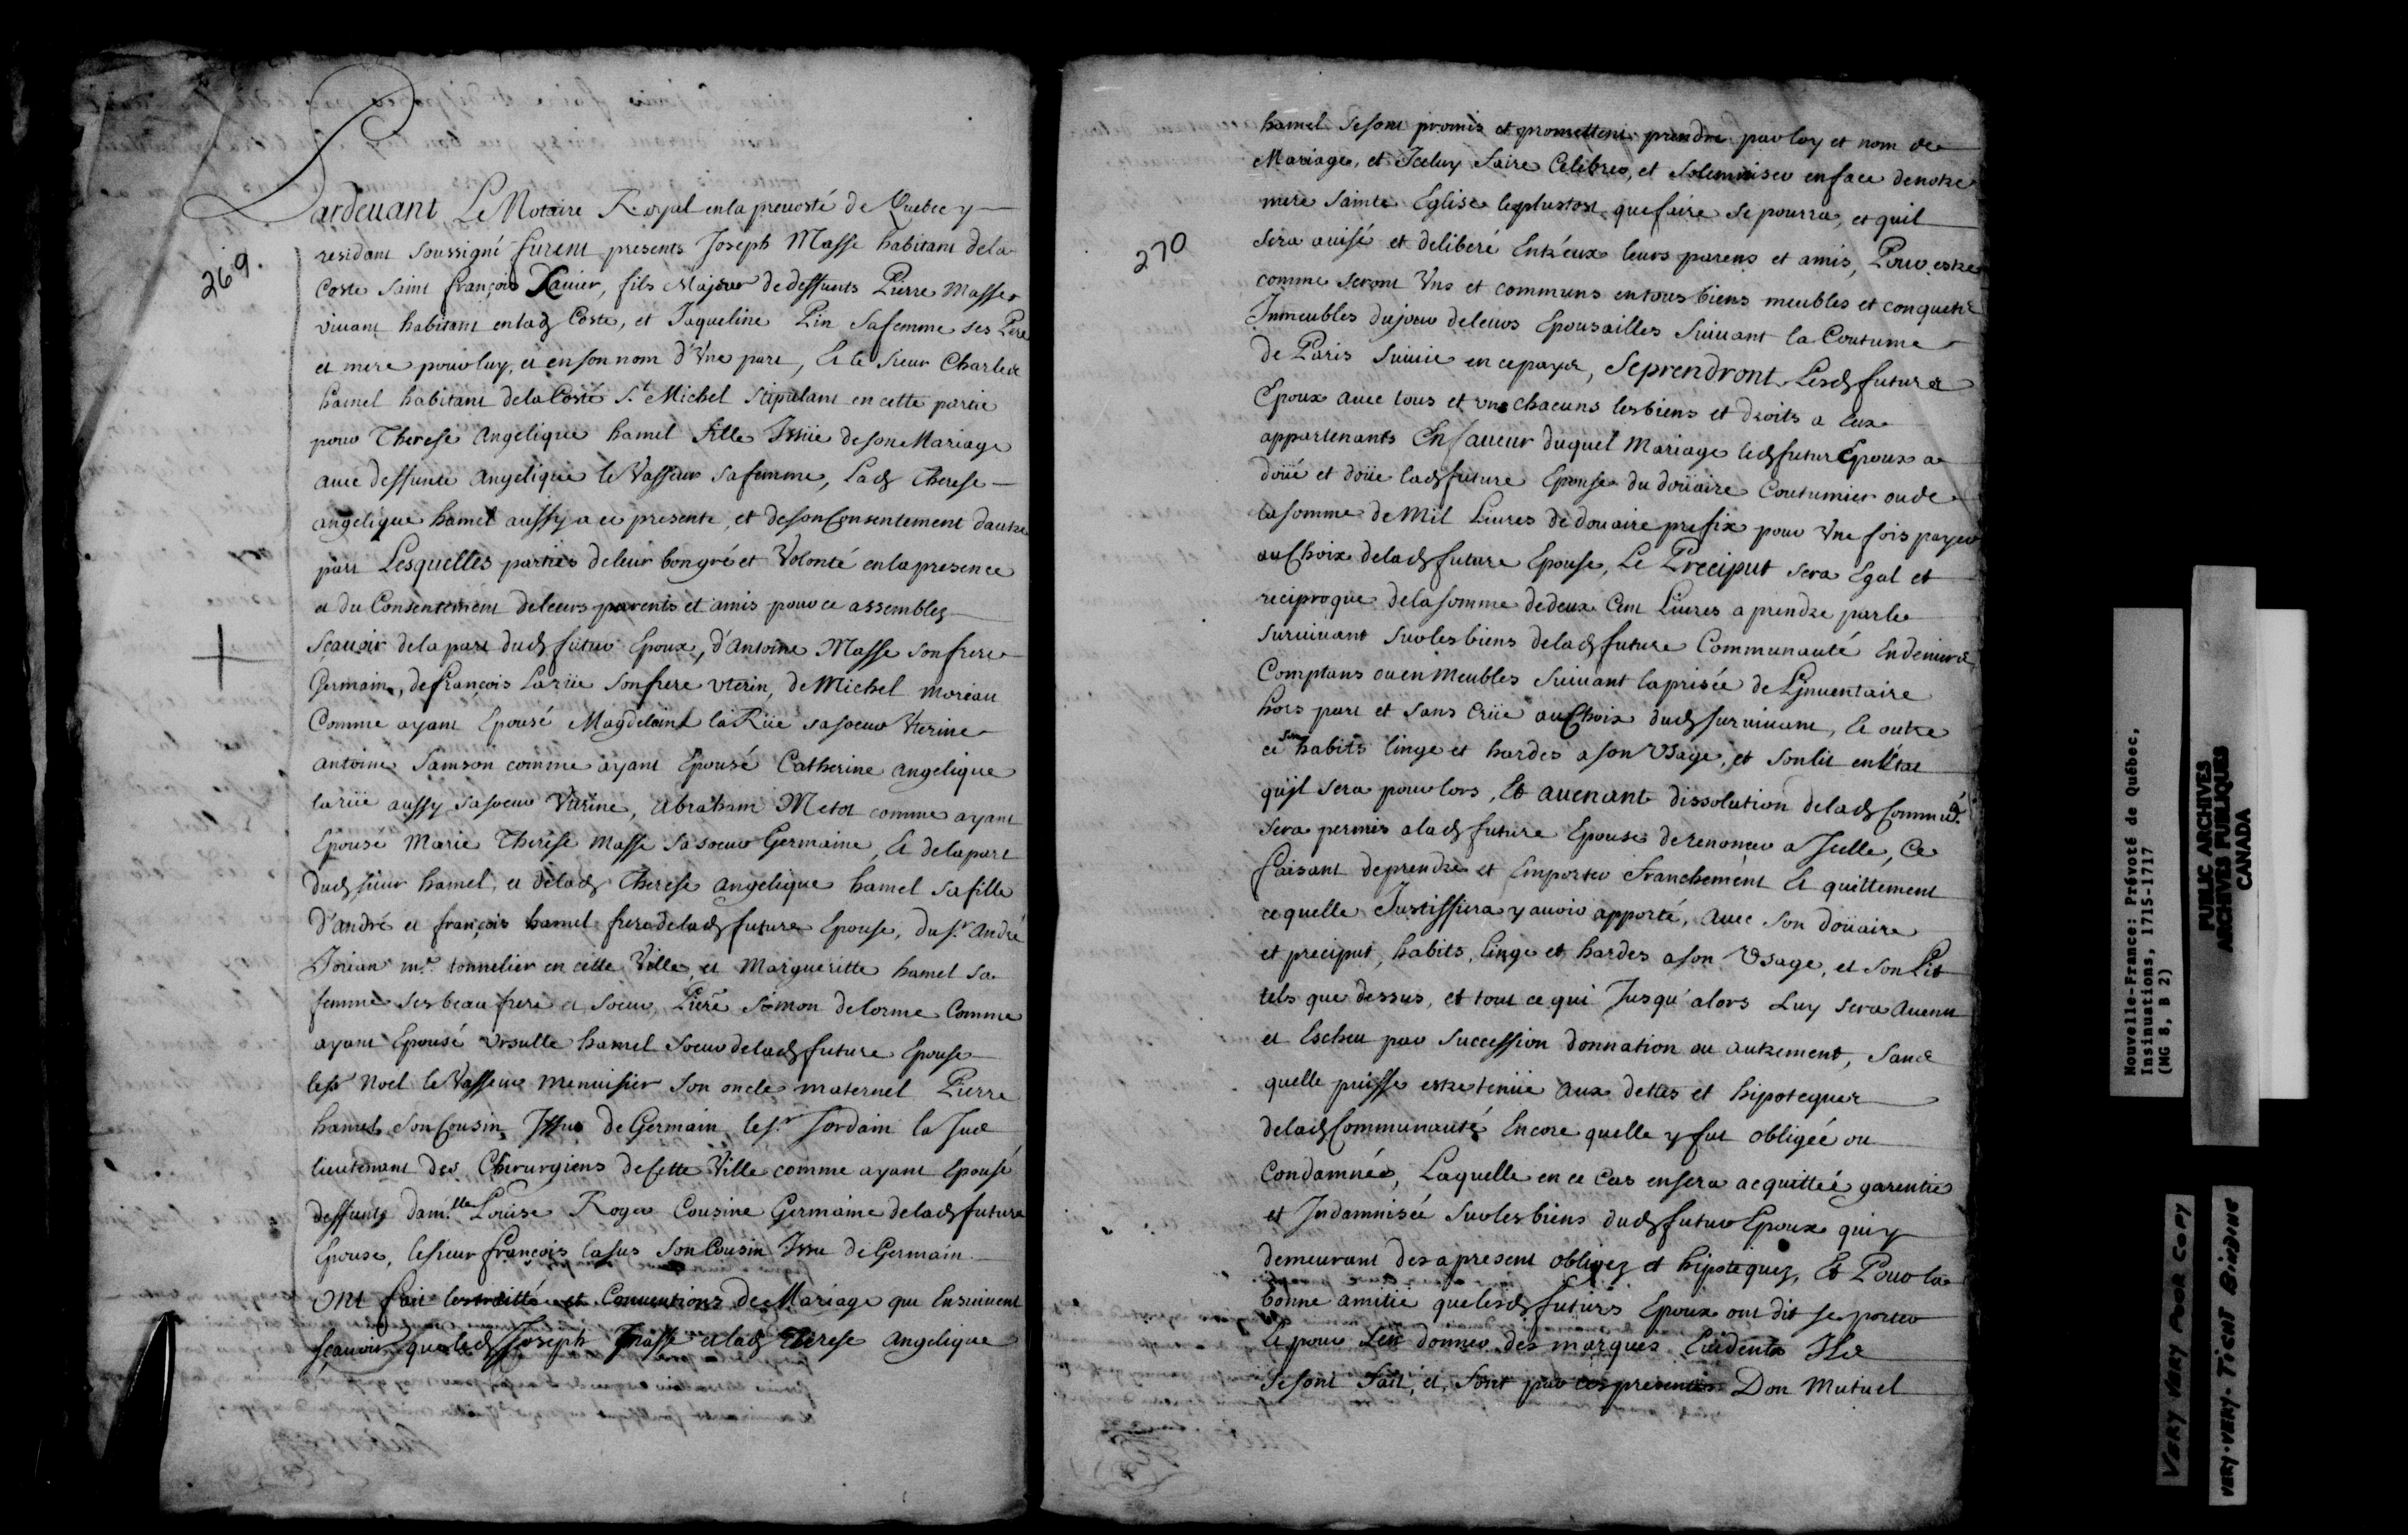 269.
Pardeuant Le Notaire Royal en la preuosté de Quebec y
residant soussigné furent presents Joseph Masse habitant dela
Coste saint françois Xauier, fils Majeur de deffunts Pierre Masse
viuant habitant en lad Coste, et Jaqueline Pin sa femme ses Pere
et mere pour luy, et en son nom d'Vne part, Et le sieur Charles
hamel habitant dela Coste St Michel stipulant en cette partie
pour Therese angelique hamel fille Issüe de son Mariage
auec deffunte angelique le Vasseur sa femme, Lad Therese
angelique hamel aussy a ce presente, et de son Consentement dautre
part Lesquelles parties deleur bon gré et Volonté en la presence
et du Consentement deleurs parents et amis pour ce assemblez
Scauoir dela part dud futur Epoux, d'antoine Masse son frere
Germain, de françois Larüe son frere vterin, de Michel moreau
Comme ayant Epousé Magdelaine la Rüe sa soeur Vterine
antoine Samson comme ayant Epousé Catherine angelique
larüe aussy sa soeur Vterine, abraham Metot comme ayant
Epousé Marie Therese Masse sa soeur Germaine, Et dela part
dud sieur hamel, et delad Therese angelique hamel sa fille
D'andré et françois hamel freres delad future Epouse, du sr. andré
Jorian me. tonnelier en cette Ville, et Margueritte hamel sa
femme ses beau frere et soeur, Pierre Simon delorme Comme
ayant Epousé Vrsulle hamel soeur delad future Epouse
le sr Noel le Vasseur menuisier son oncle maternel Pierre
hamel son Cousin Issus de Germain le sr. Jordain la Jus
lieutenant des Chirurgiens de Cette Ville comme ayant Epousé
deffunte damlle Louise Roger Cousine Germaine delad future
Epouse, le sieur françois lasus son Cousin Issu de Germain
ont fait les traitté et Conuentions de Mariage qui Ensuiuent
scauoir que led Joseph Masse et lad Therese angelique
270
hamel se sont promis et promettent prendre par loy et nom de
Mariage, et Iceluy faire Celebrer, et solemniser en face de notre
mere sainte Eglise le plustost que faire se pourra, et quil
sera auisé et deliberé Entr'eux leurs parens et amis, Pour estre
comme seront Vns et communs en tous biens meubles et conquets
Immeubles du jour deleurs Epousailles suiuant la Coutume
de Paris suiuie en ce payis, Se prendront Lesd futurs
Epoux auec tous et vns chacuns les biens et droits a Eux
appartenants En faueur duquel Mariage led futur Epoux a
doüé et doüe lad future Epouse du doüaire Coutumier ou de
la somme de Mil Liures de douaire prefix pour Vne fois payer
au Choix delad future Epouse, Le Preciput sera Egal et
reciproque dela somme de deux Cent Liures a prendre par le
suruiuant sur les biens delad future Communauté En deniers
Comptans ou en Meubles suiuant la prisée de L'Inuentaire
hors part et sans Crüe au Choix dud suruiuant, Et outre
ce ses habits linge et hardes a son Vsage, et son lit en l'état
qu'il sera pour lors, Et auenant dissolution delad Commuté.
sera permis a lad future Epouse de renoncer a Icelle, Ce
faisant de prendre et Emporter franchement Et quittement
ce quelle Justiffiera y auoir apporté, auec son doüaire
et preciput, habits, linge et hardes a son Vsage, et son Lit
tels que dessus, et tout ce qui Jusqu'alors Luy sera auenu
et Escheu par succession donnation ou autrement, sans
quelle puisse estre tenüe aux dettes et hipoteques
delad Communauté Encore quelle y fut obligée ou
Condamnée, Laquelle en ce Cas en sera acquittée garentie
et Indamnisée sur les biens dud futur Epoux qui y
demeurant des a present obligez et hipotequez, Et Pour la
bonne amitié que lesd futurs Epoux ont dit se porter
Et pour s'en donner des marques Euidentes Ils
se sont fait, et font par ces presentes Don Mutuel
Nouvelle-France: Prévoté de Québec,
Insinuations, 1715-1717
(MG 8, B 2)
PUBLIC ARCHIVES
ARCHIVES PUBLIQUES
CANADA
VERY VERY POOR COPY
VERY-VERY-TIGHT BINDING